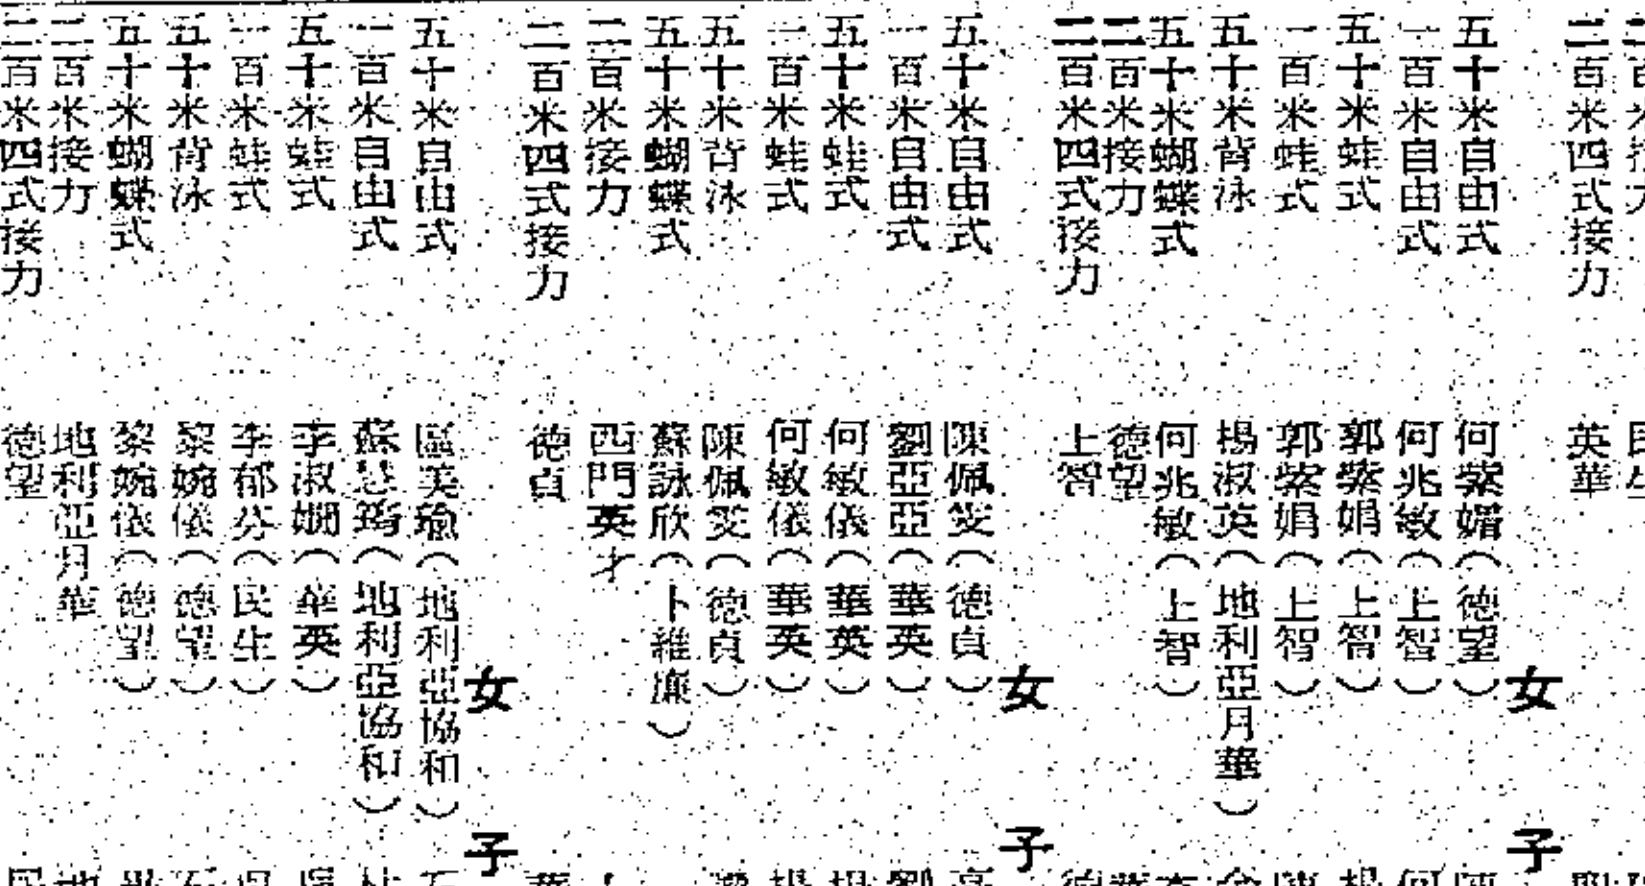 二百米四式接力　英華
女子
五十米自由式　何紫媚（德望）
一百米自由式　何兆敏（上智）
五十米蛙式　郭紫娟（上智）
一百米蛙式　郭紫娟（上智）
五十米背泳　楊淑英（地利亞月華）
五十米蝴蝶式　何兆敏（上智）
二百米接力　德望
二百米四式接力　上智
女子
五十米自由式　陳佩雯（德貞）
一百米自由式　劉亞亞（華英）
五十米蛙式　何敏儀（華英）
一百米蛙式　何敏儀（華英）
五十米背泳　陳佩雯（德貞）
五十米蝴蝶式　蘇詠欣（卜維廉）
二百米接力　西門英才
二百米四式接力　德貞
女子
五十米自由式　區美瑜（地利亞協和）
一百米自由式　蘇慧筠（地利亞協和）
五十米蛙式　李淑嫻（華英）
一百米蛙式　李郁芬（民生）
五十米背泳　黎婉儀（德望）
五十米蝴蝶式　黎婉儀（德望）
二百米接力　地利亞月華
二百米四式接力　德望